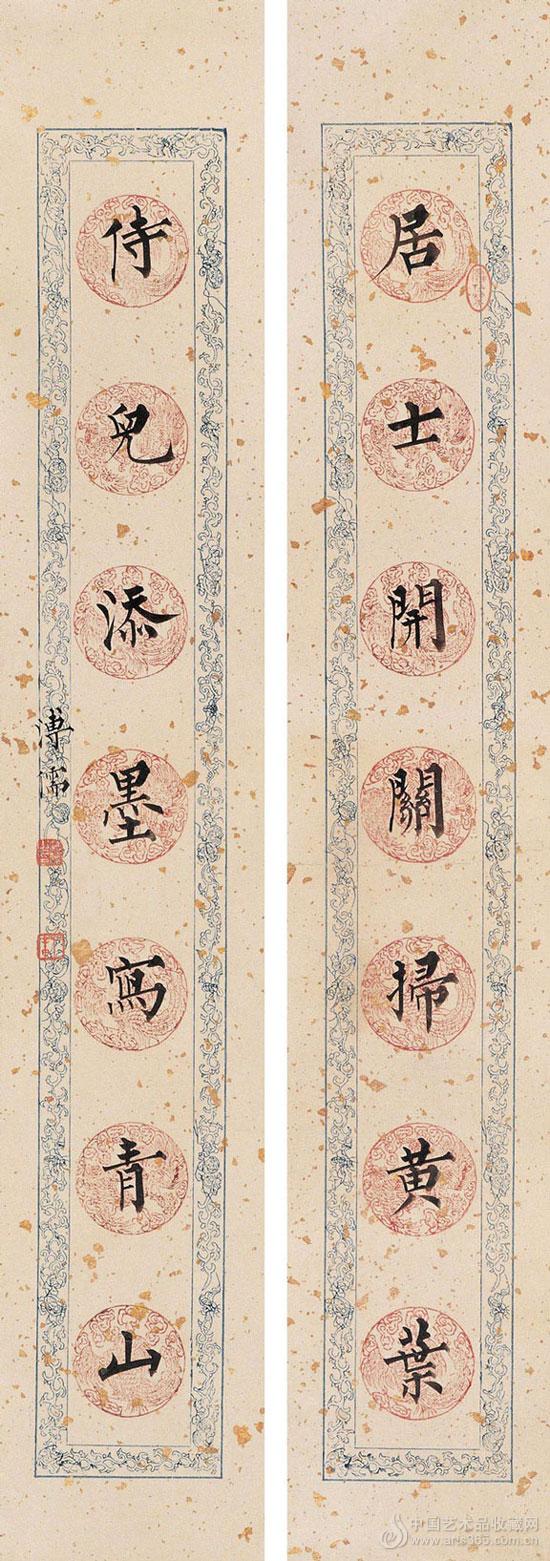 居士開關掃黃葉
侍兒添墨寫青山
溥儒
中国艺术品收藏网
www.arts365.com.cn